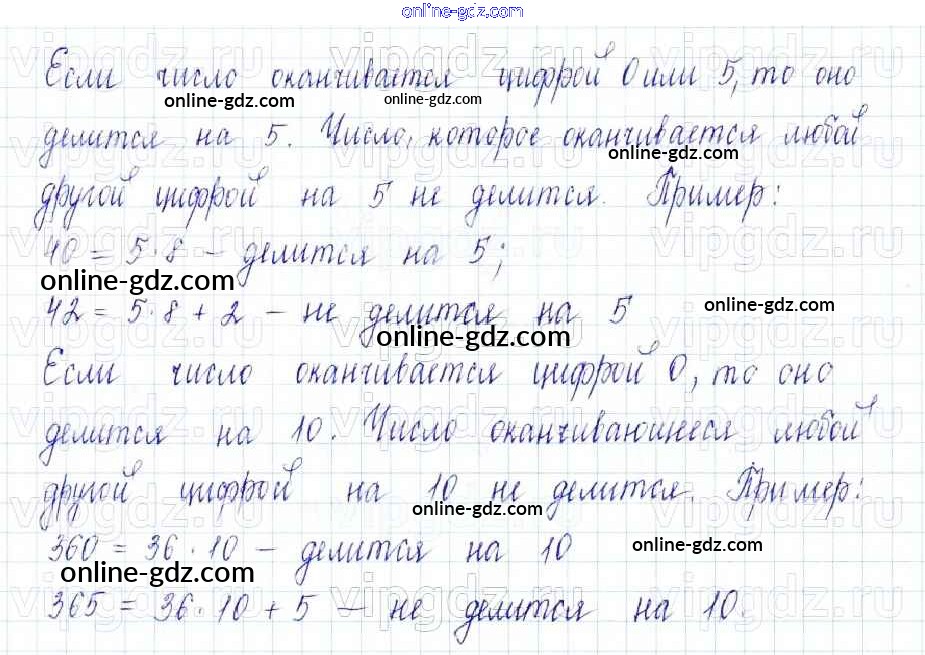 online-gdz.com
Если число оканчивается цифрой 0 или 5, то оно
online-gdz.com online-gdz.com
делится на 5. Число, которое оканчивается любой
online-gdz.com
другой цифрой на 5 не делится. Пример:
40 = 5·8 – делится на 5;
online-gdz.com
42 = 5·8 + 2 – не делится на 5
online-gdz.com
online-gdz.com
Если число оканчивается цифрой 0, то оно
делится на 10. Число оканчивающиеся любой
другой цифрой на 10 не делится. Пример:
online-gdz.com
360 = 36·10 – делится на 10
online-gdz.com
online-gdz.com
365 = 36·10 + 5 – не делится на 10.
vipgdz.ru